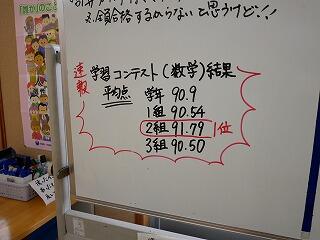 ※全員合格するからないと思うけど!!
速報
学習コンテスト(数学)結果
平均点 学年 90.9
1組 90.54
2組 91.79 1位
3組 90.50